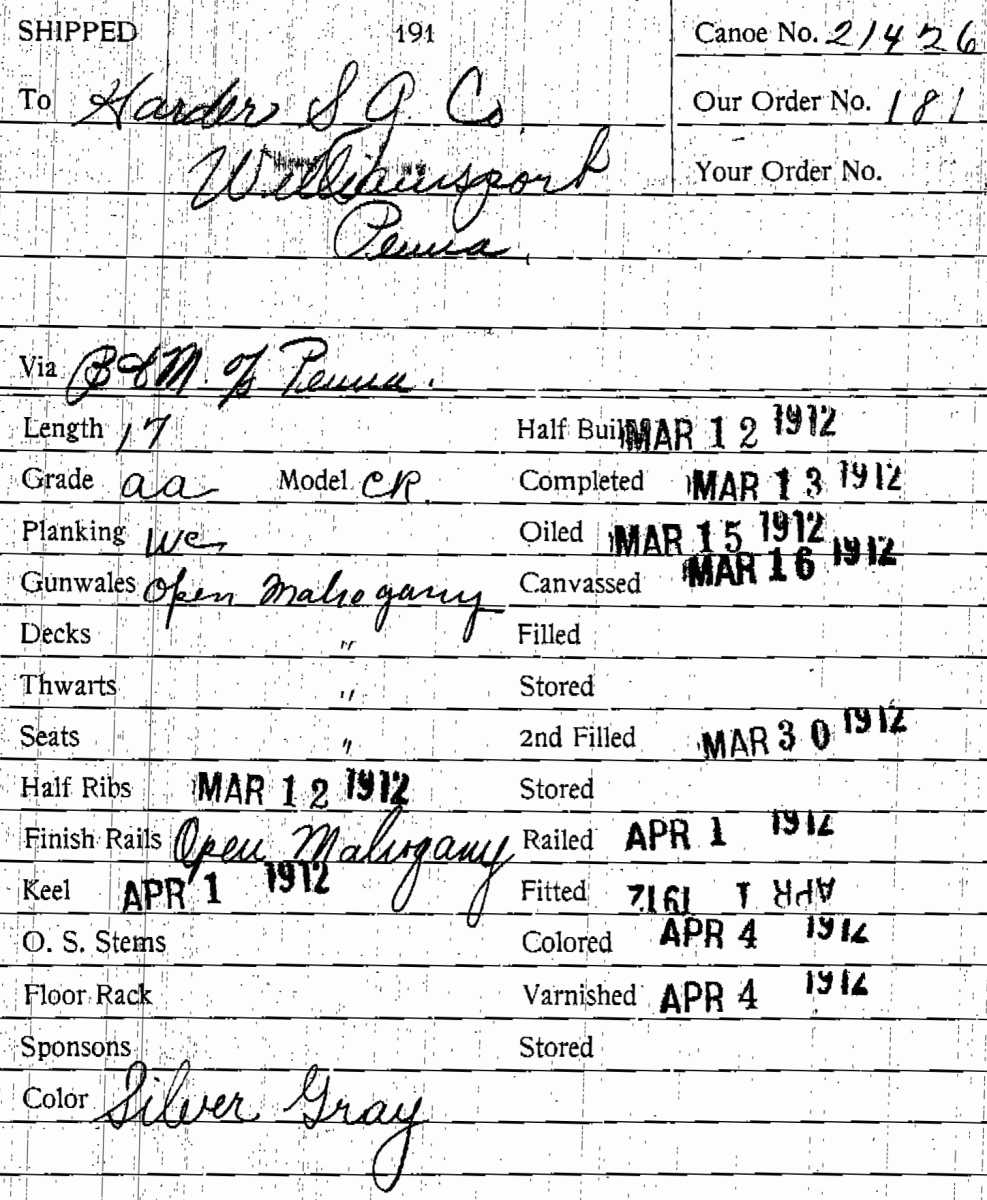 SHIPPED 191 Canoe No. 21426
To Harder S G Co. Our Order No. 181
Williamsport Your Order No.
Penna.
Via B & M. % Penna.
Length 17 Half Built MAR 12 1912
Grade aa Model CR. Completed MAR 13 1912
Planking WC Oiled MAR 15 1912
Gunwales Open Mahogany Canvassed MAR 16 1912
Decks " Filled
Thwarts " Stored
Seats " 2nd Filled MAR 30 1912
Half Ribs MAR 12 1912 Stored
Finish Rails Open Mahogany Railed APR 1 1912
Keel APR 1 1912 Fitted APR 1 1912
O. S. Stems Colored APR 4 1912
Floor Rack Varnished APR 4 1912
Sponsons Stored
Color Silver Gray